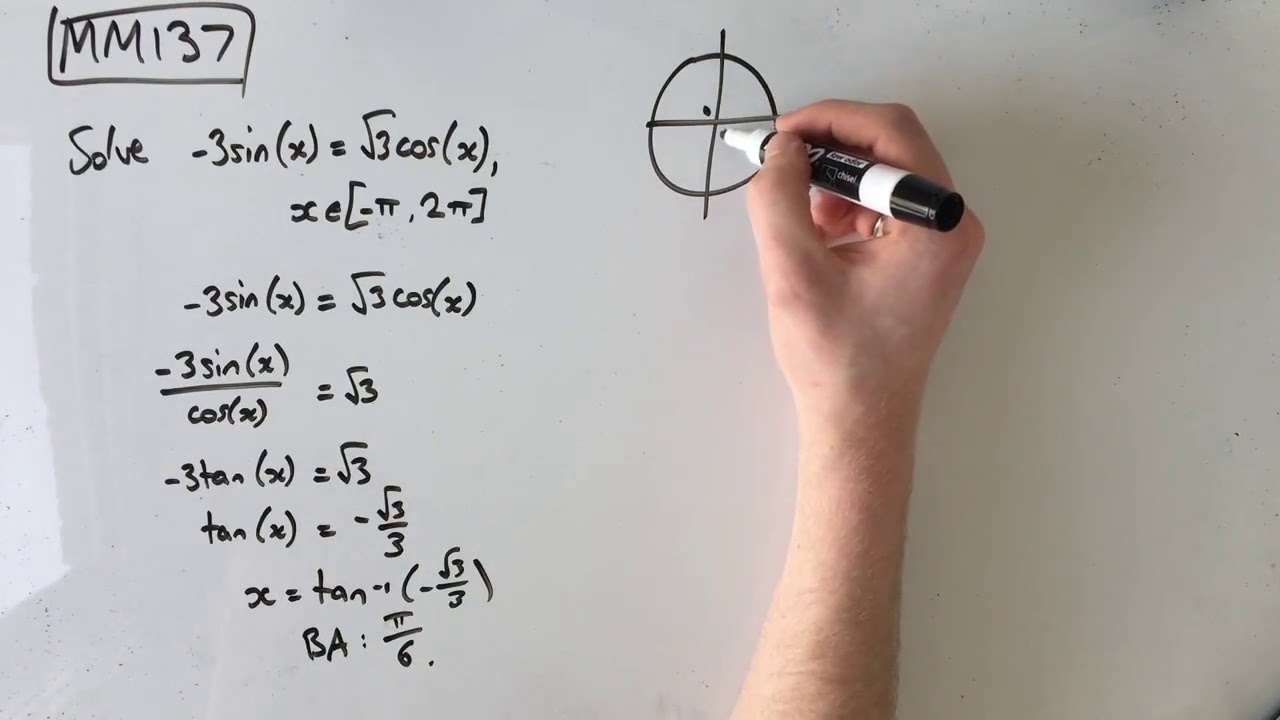 MM137
Solve -3sin(x) = √3cos(x),
x∈[-π, 2π]
-3sin(x) = √3cos(x)
-3sin(x)/cos(x) = √3
-3tan(x) = √3
tan(x) = -√3/3
x = tan⁻¹(-√3/3)
BA: π/6.
low odor
chisel